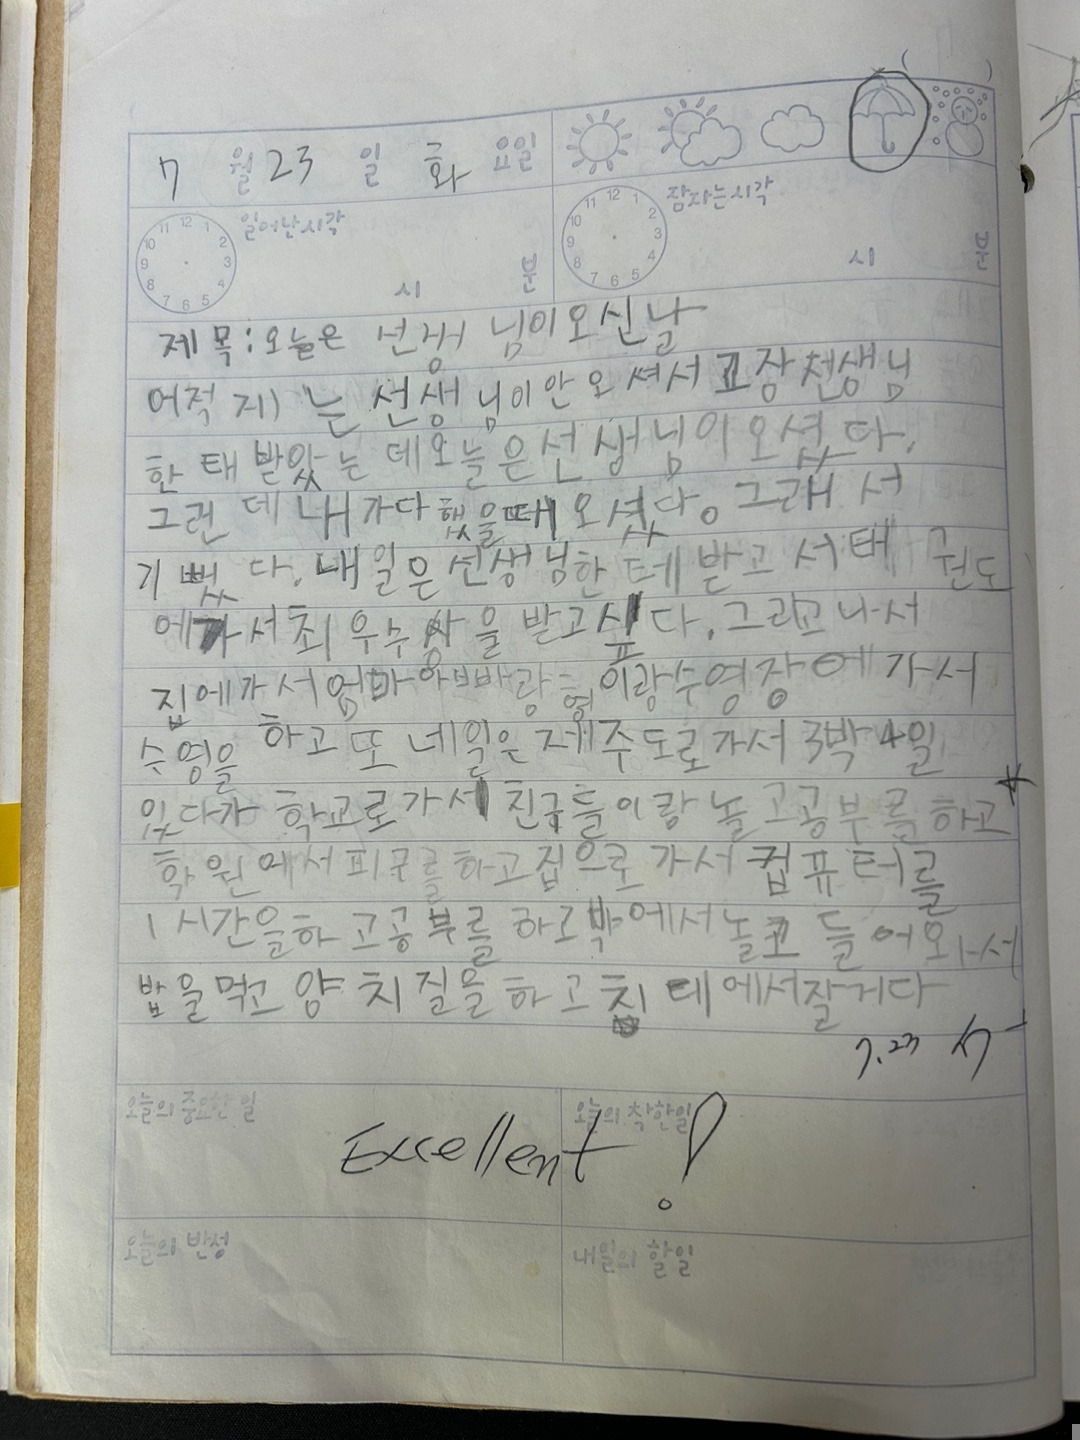 7 월 23 일 화 요일
일어난시각 시 분
잠자는시각 시 분
11 12 1
10 2
9 3
8 4
7 6 5
11 12 1
10 2
9 3
8 4
7 6 5
제목:오늘은 선생님이오신날
어적지는 선생님이안오셔서교장선생님
한태받았는데오늘은선생님이오셨다.
그런데내가다했을때오셨다。그래서
기뻤다.내일은선생님한테받고서태권도
에가서최우수상을받고싶다.그리고나서
집에가서엄마아빠랑형이랑수영장에가서
수영을하고또네일은제주도로가서3박4일
있다가학교로가서친구들이랑놀고공부를하고
학원에서피구를하고집으로가서컴퓨터를
1시간을하고공부를하고밖에서놀고들어와서
밥을먹고양치질을하고침데에서잘거다
7.23
오늘의 중요한 일
오늘의 착한일
Excellent!
오늘의 반성
내일의 할일